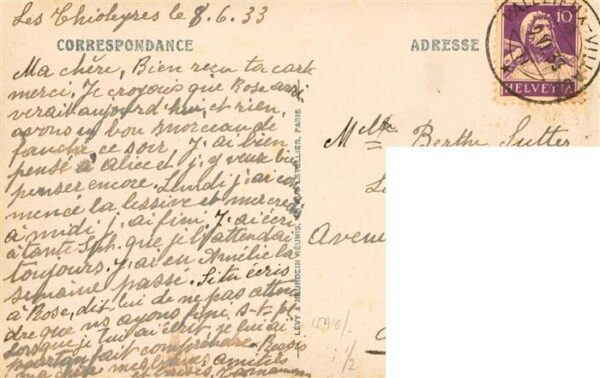 Les Thioleyres le 8.6.33
CORRESPONDANCE
ADRESSE
PALÉZIEUX-VILLAGE
10
HELVETIA
Ma chère, Bien reçu ta carte
merci. Je croyais que Rose arri
verait aujourd'hui, et rien,
avons un bon morceau de
fauché ce soir, J'ai bien
pensé à Alice et j'y veux bien
penser encore. Lundi j'ai com
mencé la lessive et mercredi
à midi j'ai fini. J'ai écri
à tante Sph. que je l'attendai
toujours. J'ai eu Amélie la
semaine passé. Si tu écris
à Rose, dit lui de ne pas atten
dre que ns ayons fini, s-t-pl
lorsque je lui ai écrit, je lui ai
pourtan fait comprendre. Reçois
ma chère mes bonnes amitiés
et baisers
Melle Berthe Sutter
Avenu
LÉVY & NEURDEIN RÉUNIS, PARIS
1/2